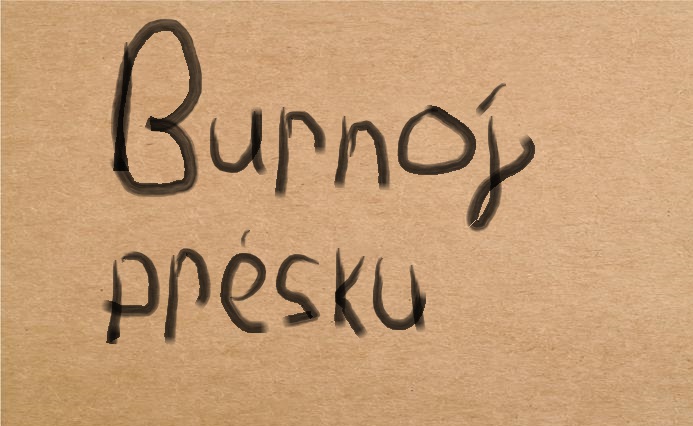 Burnoj
présku